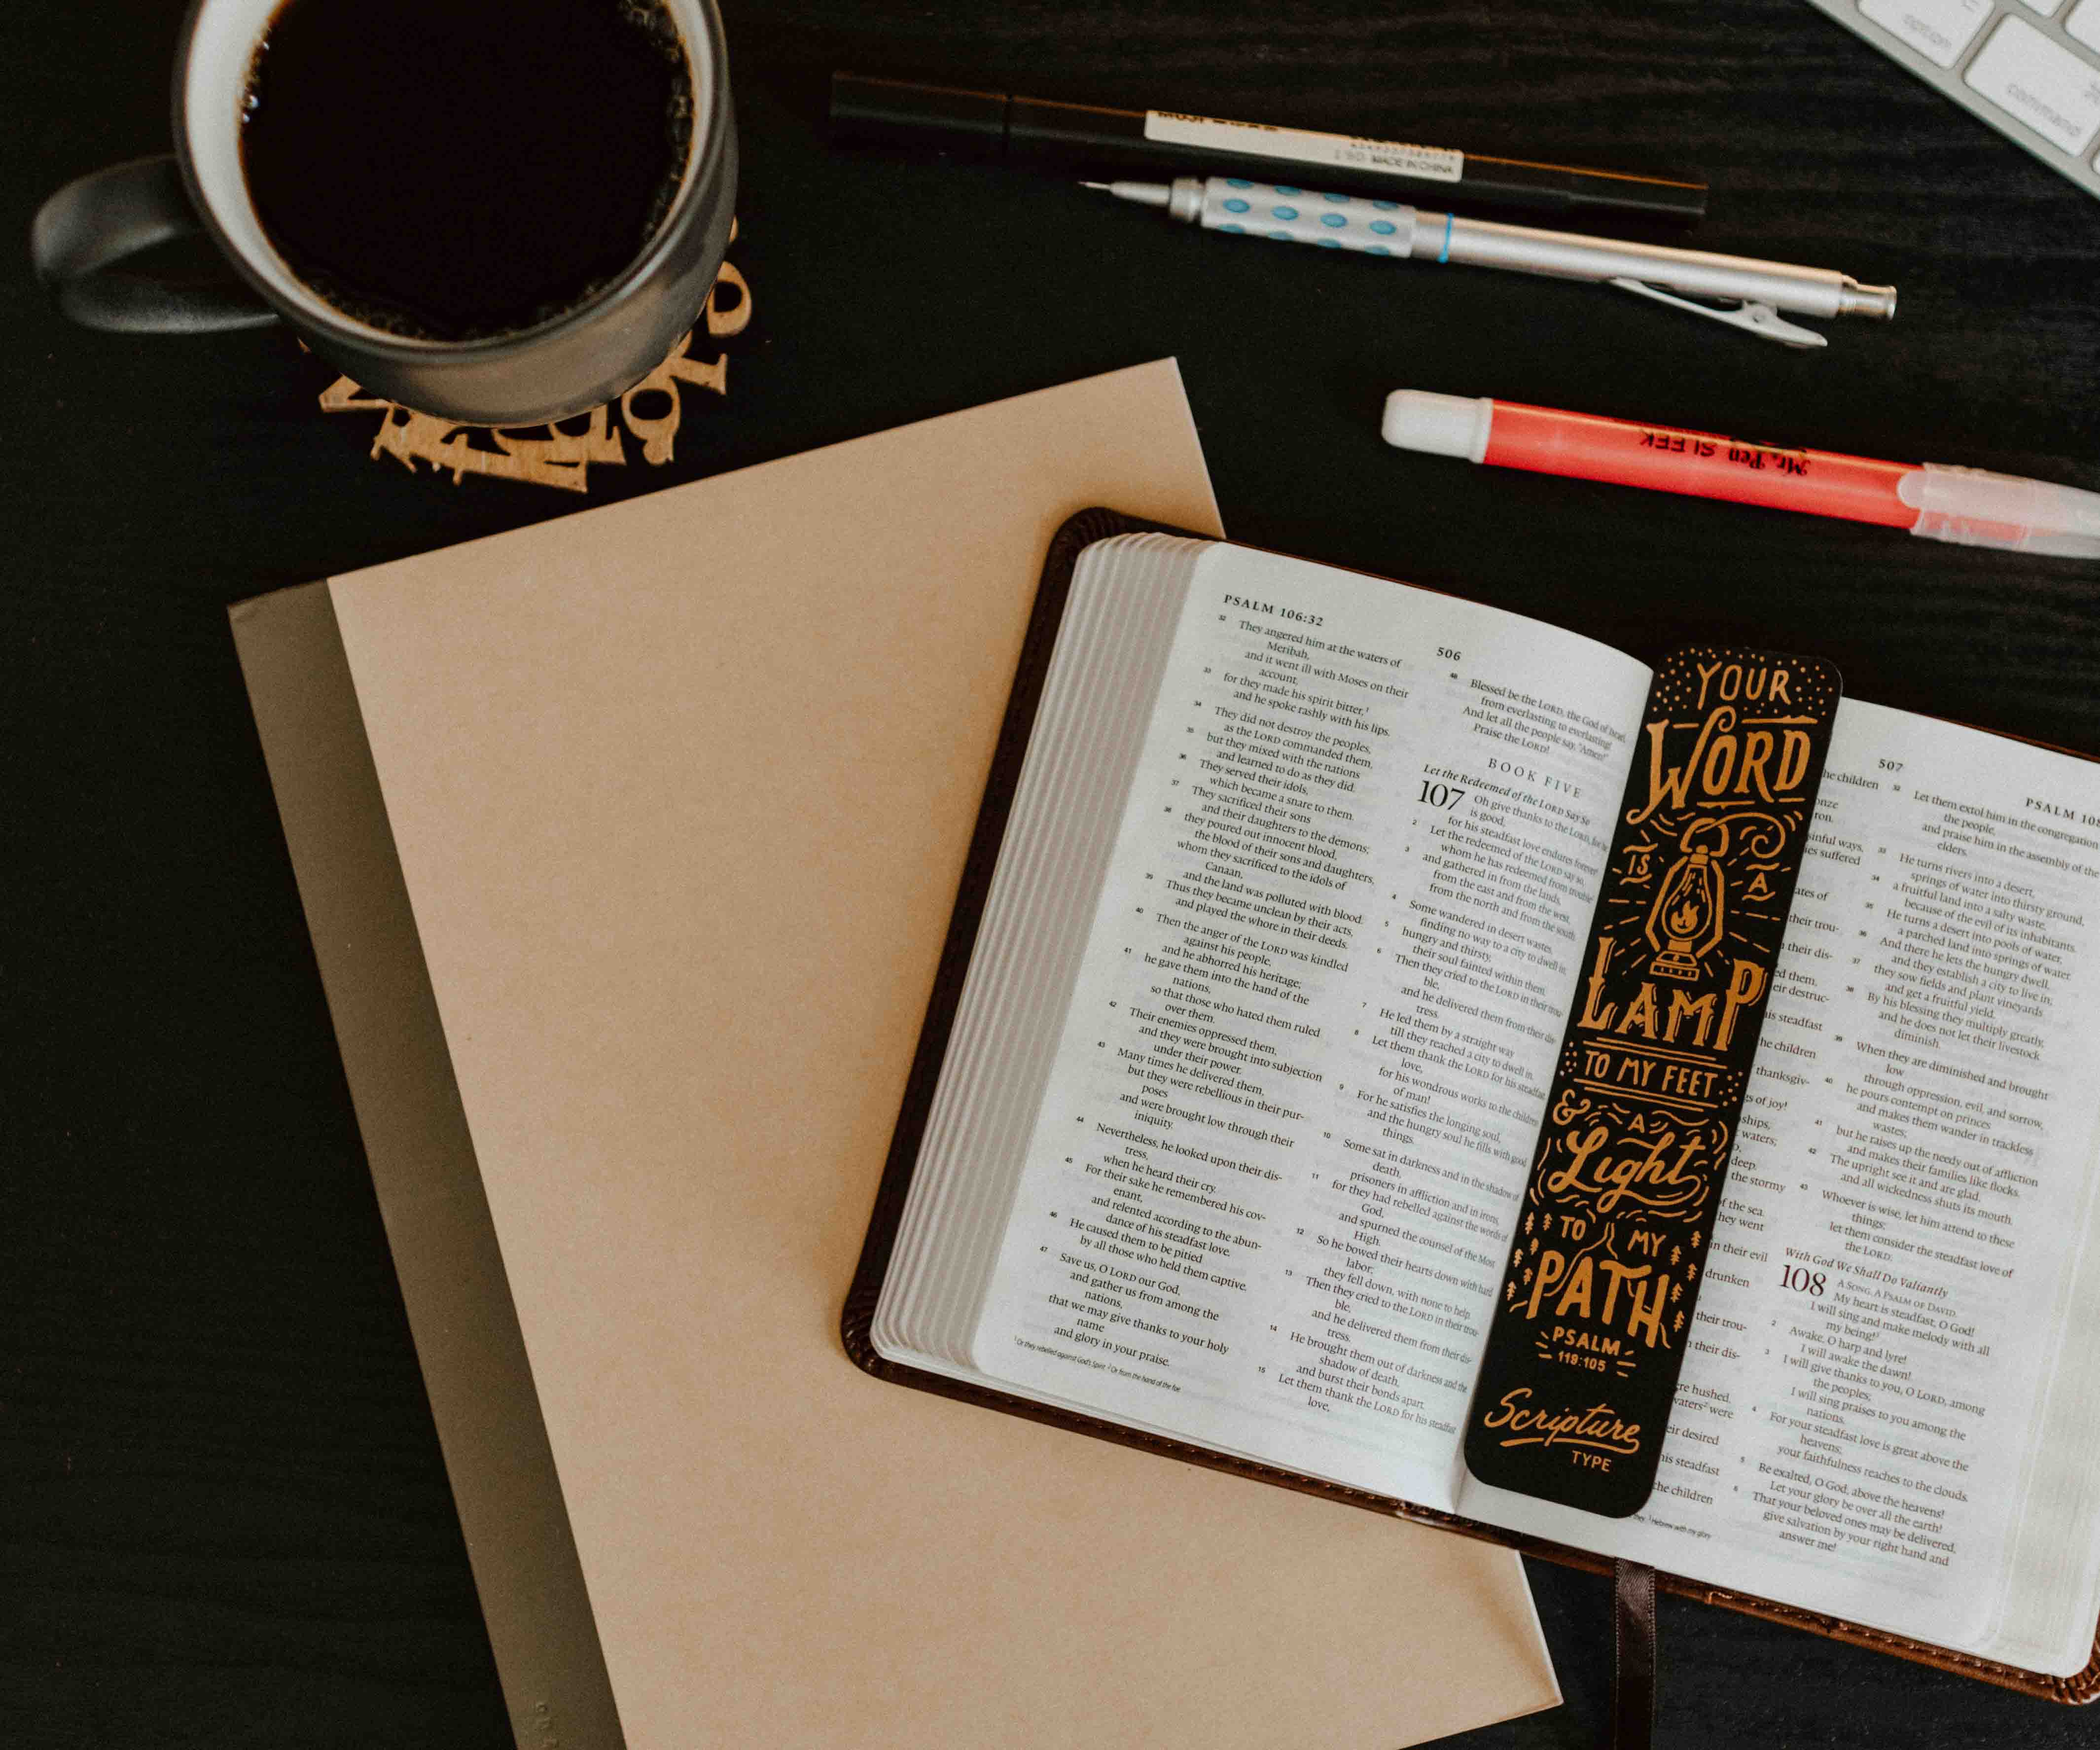 option
command
MADE IN CHINA
Mr. Pen SLEEK
PSALM 106:32
506
32 They angered him at the waters of
Meribah,
and it went ill with Moses on their
account,
33 for they made his spirit bitter,1
and he spoke rashly with his lips.
34 They did not destroy the peoples,
as the LORD commanded them,
35 but they mixed with the nations
and learned to do as they did.
36 They served their idols,
which became a snare to them.
37 They sacrificed their sons
and their daughters to the demons;
38 they poured out innocent blood,
the blood of their sons and daughters,
whom they sacrificed to the idols of
Canaan,
and the land was polluted with blood.
39 Thus they became unclean by their acts,
and played the whore in their deeds.
40 Then the anger of the LORD was kindled
against his people,
and he abhorred his heritage;
41 he gave them into the hand of the
nations,
so that those who hated them ruled
over them.
42 Their enemies oppressed them,
and they were brought into subjection
under their power.
43 Many times he delivered them,
but they were rebellious in their pur-
poses
and were brought low through their
iniquity.
44 Nevertheless, he looked upon their dis-
tress,
when he heard their cry.
45 For their sake he remembered his cov-
enant,
and relented according to the abun-
dance of his steadfast love.
46 He caused them to be pitied
by all those who held them captive.
47 Save us, O LORD our God,
and gather us from among the
nations,
that we may give thanks to your holy
name
and glory in your praise.
1 Or they rebelled against God's Spirit 2 Or from the hand of the foe
48 Blessed be the LORD, the God of Israel,
from everlasting to everlasting!
And let all the people say, "Amen!"
Praise the LORD!
BOOK FIVE
Let the Redeemed of the LORD Say So
107 Oh give thanks to the LORD, for he
is good,
for his steadfast love endures forever!
2 Let the redeemed of the LORD say so,
whom he has redeemed from trouble
3 and gathered in from the lands,
from the east and from the west,
from the north and from the south.
4 Some wandered in desert wastes,
finding no way to a city to dwell in;
5 hungry and thirsty,
their soul fainted within them.
6 Then they cried to the LORD in their trou-
ble,
and he delivered them from their dis-
tress.
7 He led them by a straight way
till they reached a city to dwell in.
8 Let them thank the LORD for his steadfast
love,
for his wondrous works to the children
of man!
9 For he satisfies the longing soul,
and the hungry soul he fills with good
things.
10 Some sat in darkness and in the shadow of
death,
prisoners in affliction and in irons,
11 for they had rebelled against the words of
God,
and spurned the counsel of the Most
High.
12 So he bowed their hearts down with hard
labor;
they fell down, with none to help.
13 Then they cried to the LORD in their trou-
ble,
and he delivered them from their dis-
tress.
14 He brought them out of darkness and the
shadow of death,
and burst their bonds apart.
15 Let them thank the LORD for his steadfast
love,
YOUR
WORD
IS A
LAMP
TO MY FEET
& A
Light
TO MY
PATH
PSALM
119:105
Scripture
TYPE
507
PSALM 108
he children
onze
ron.
sinful ways,
es suffered
ates of
their trou-
their dis-
ed them,
eir destruc-
is steadfast
he children
thanksgiv-
s of joy!
ships,
waters;
deep.
the stormy
f the sea.
hey went
in their evil
drunken
their trou-
their dis-
re hushed.
waters2 were
eir desired
his steadfast
the children
they 3 Hebrew with my glory
32 Let them extol him in the congregation
the people,
and praise him in the assembly of the
elders.
33 He turns rivers into a desert,
springs of water into thirsty ground,
34 a fruitful land into a salty waste,
because of the evil of its inhabitants.
35 He turns a desert into pools of water,
a parched land into springs of water.
36 And there he lets the hungry dwell,
and they establish a city to live in;
37 they sow fields and plant vineyards
and get a fruitful yield.
38 By his blessing they multiply greatly,
and he does not let their livestock
diminish.
39 When they are diminished and brought
low
through oppression, evil, and sorrow,
40 he pours contempt on princes
and makes them wander in trackless
wastes;
41 but he raises up the needy out of affliction
and makes their families like flocks.
42 The upright see it and are glad,
and all wickedness shuts its mouth.
43 Whoever is wise, let him attend to these
things;
let them consider the steadfast love of
the LORD.
With God We Shall Do Valiantly
108 A SONG. A PSALM OF DAVID.
My heart is steadfast, O God!
I will sing and make melody with all
my being!3
2 Awake, O harp and lyre!
I will awake the dawn!
3 I will give thanks to you, O LORD, among
the peoples;
I will sing praises to you among the
nations.
4 For your steadfast love is great above the
heavens;
your faithfulness reaches to the clouds.
5 Be exalted, O God, above the heavens!
Let your glory be over all the earth!
6 That your beloved ones may be delivered,
give salvation by your right hand and
answer me!